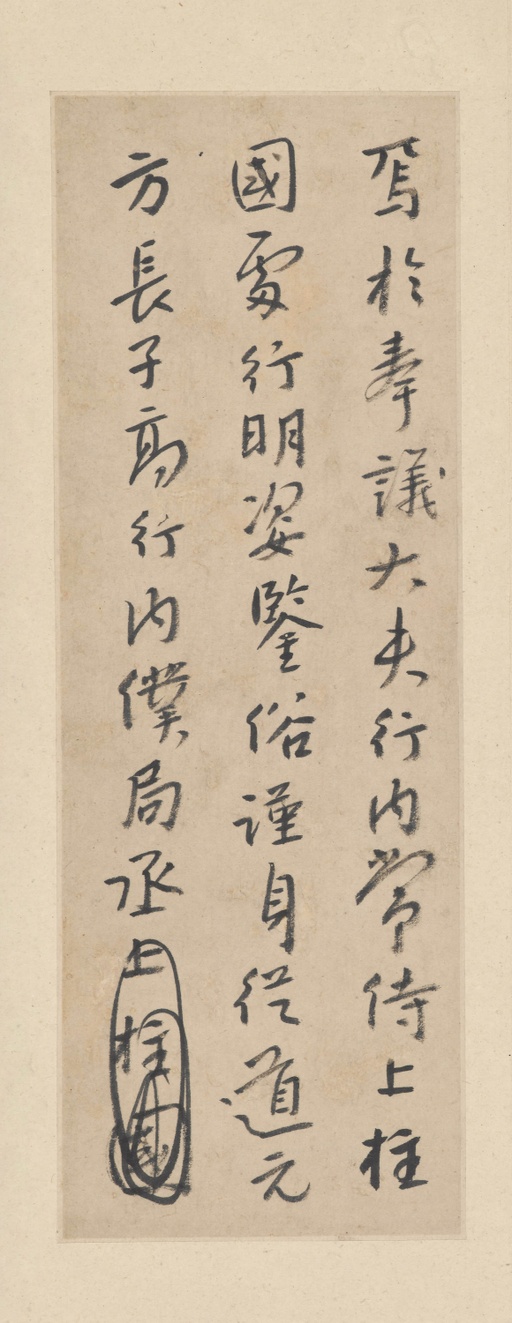 焉於奉議大夫行内常侍上柱
國處行明姿鑒俗謹身從道元
方長子高行内僕局丞上柱國